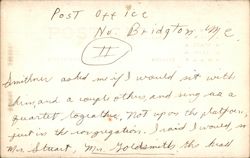 Post Office
No Bridgton Me
II
Smithner asked me if I would sit with
him and a couple others and sing as a
quartet together, Not up on the platform,
just in the congregation. I said I would, so
Mrs. Stuart, Mrs. Goldsmith, the